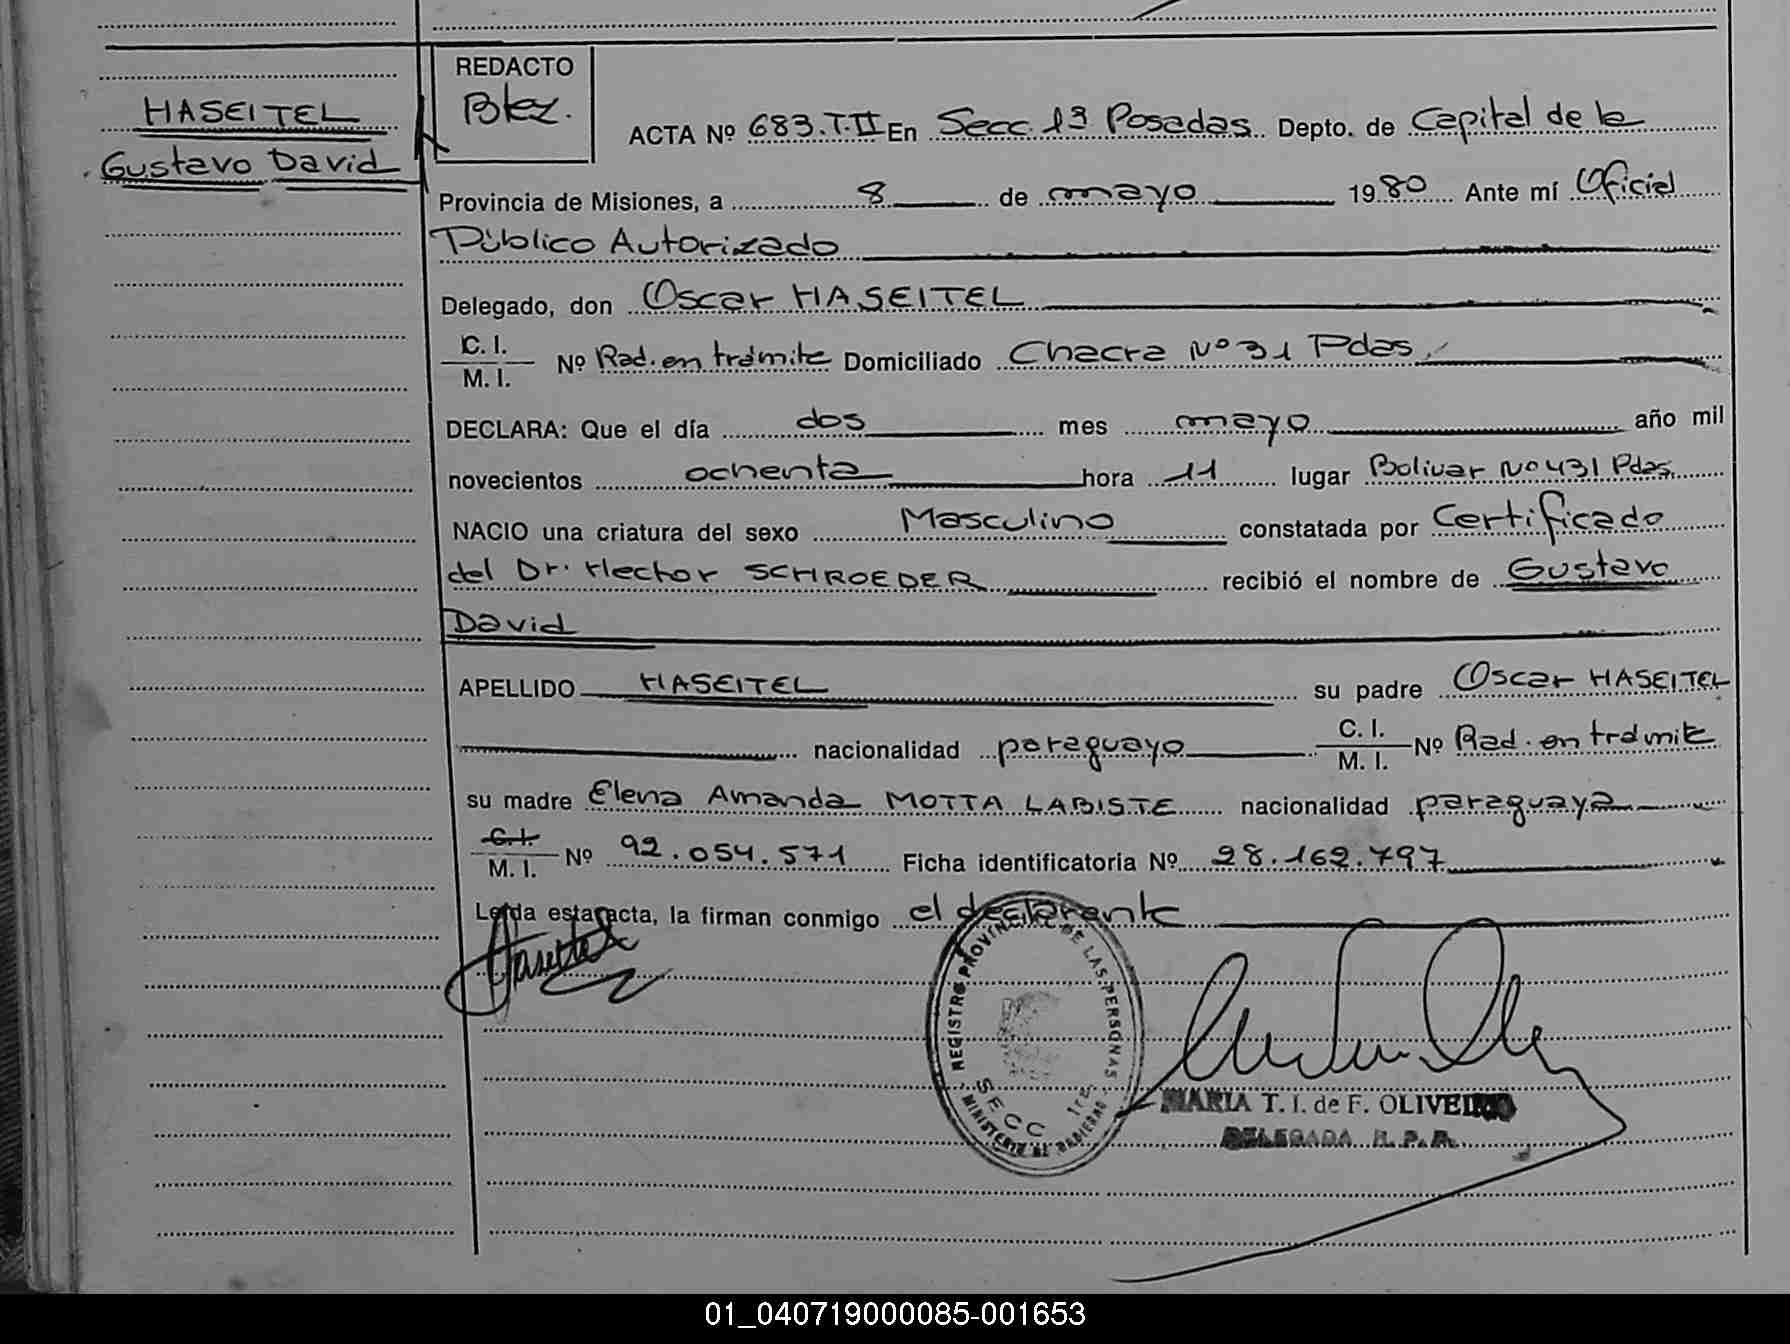 HASEITEL
Gustavo David
REDACTO
Blez.
ACTA Nº 683.T.II En Secc. 1ª Posadas Depto. de Capital de la
Provincia de Misiones, a 8 de mayo 1980 Ante mí Oficial
Público Autorizado
Delegado, don Oscar HASEITEL
C. I.
M. I.
Nº Rad. en trámite Domiciliado Chacra Nº 31 Pdas.
DECLARA: Que el día dos mes mayo año mil
novecientos ochenta hora 11 lugar Bolivar Nº 431 Pdas.
NACIO una criatura del sexo Masculino constatada por Certificado
del Dr. Hector SCHROEDER recibió el nombre de Gustavo
David
APELLIDO HASEITEL su padre Oscar HASEITEL
nacionalidad paraguayo C. I. M. I. Nº Rad. en trámite
su madre Elena Amanda MOTTA LABISTE nacionalidad paraguaya
C. I.
M. I.
Nº 92.054.571 Ficha identificatoria Nº 28.162.797
Leida esta acta, la firman conmigo el declarante
Haseitel
REGISTRO PROVINCIAL DE LAS PERSONAS
SECC 1ra
MINISTERIO DE GOBIERNO
MARIA T. I. de F. OLIVEIRO
DELEGADA R. P. P.
01_040719000085-001653